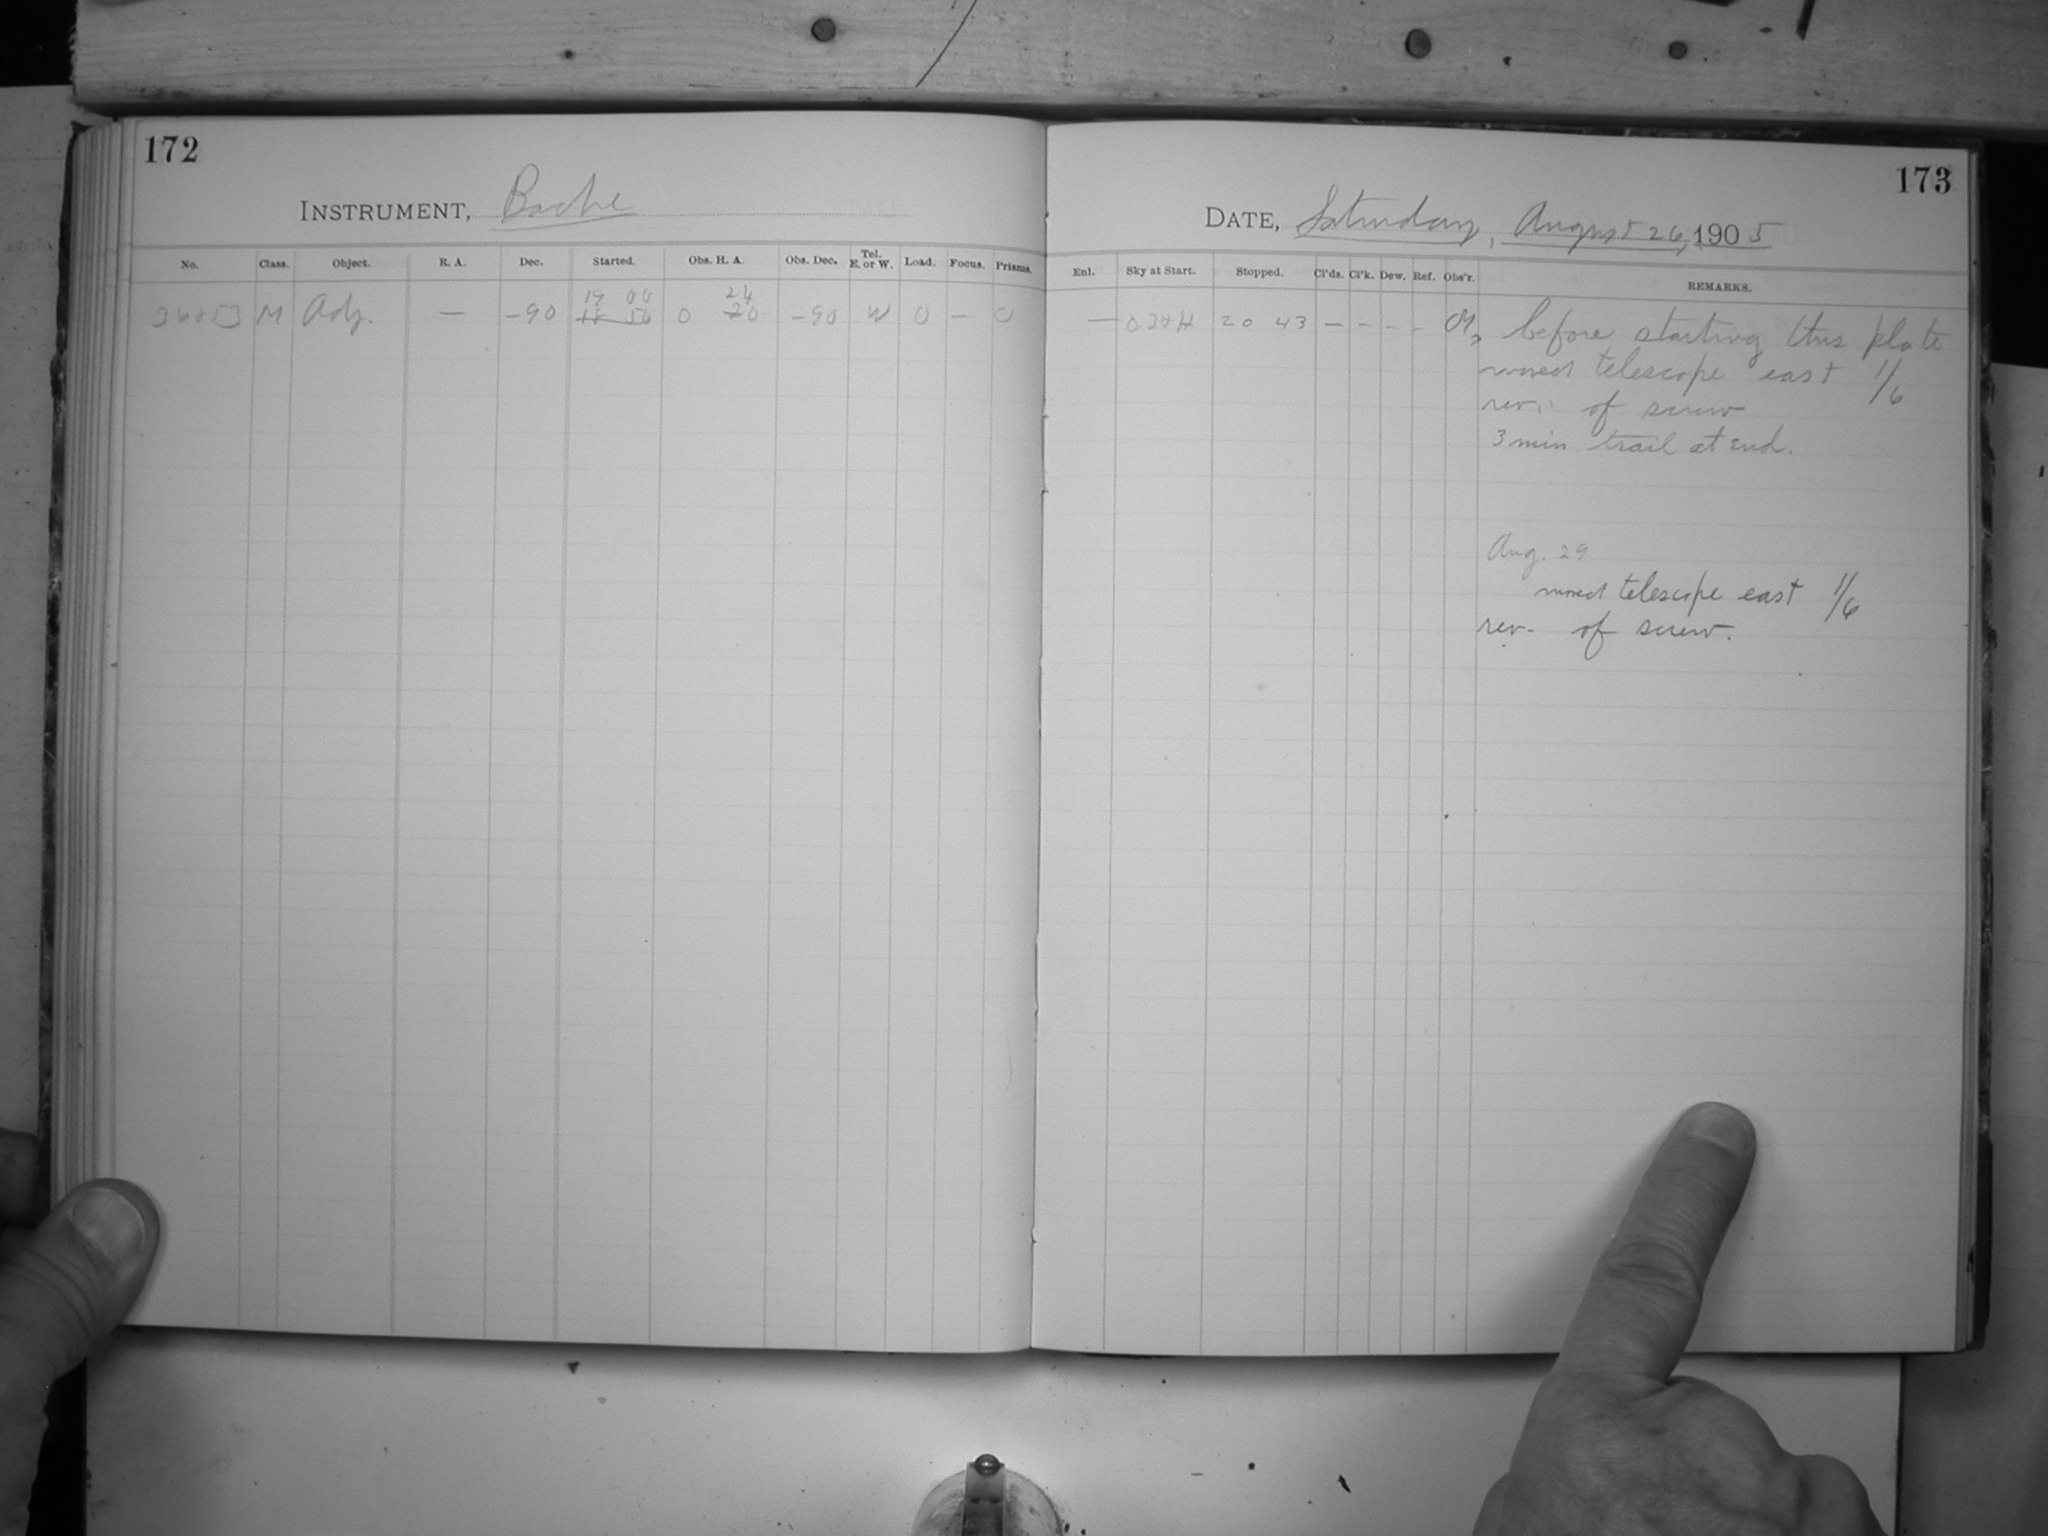 172
INSTRUMENT, Bache
No. Class. Object. R. A. Dec. Started. Obs. H. A. Obs. Dec. Tel. E. or W. Load. Focus. Prisms.
19 00 24
M Adj. — -90 18 56 0 20 -90 W 0 — 0
173
DATE, Saturday, August 26, 1905
Enl. Sky at Start. Stopped. Cl'ds. Cl'k. Dew. Ref. Obs'r. REMARKS.
— 20 43 — - - - before starting this plate
moved telescope east 1/6
rev. of screw
3 min. trail at end.
Aug. 29
moved telescope east 1/6
rev. of screw.